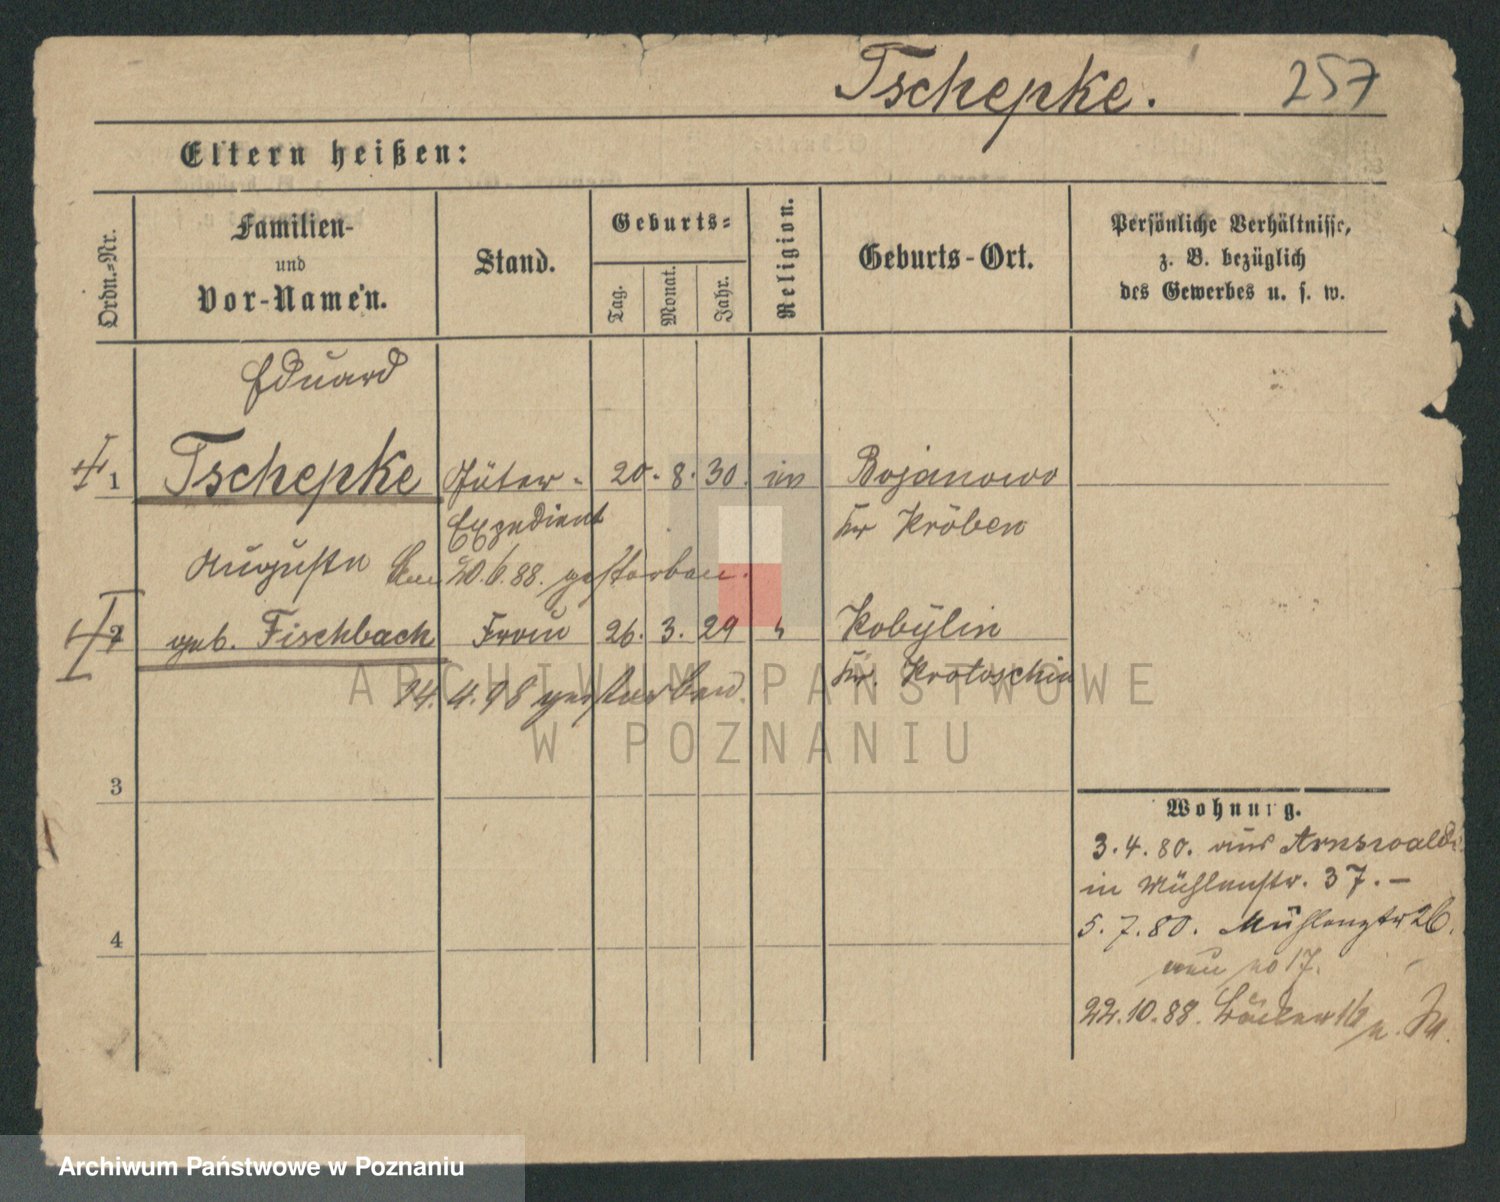 Tschepke. 257
Eltern heißen:
Ordn.-Nr.
Familien-
und
Vor-Namen.
Stand.
Geburts-
Tag.
Monat.
Jahr.
Religion.
Geburts-Ort.
Persönliche Verhältnisse,
z. B. bezüglich
des Gewerbes u. s. w.
Eduard
1 Tschepke Güter- 20. 8. 30. Bojanowo
Expedient Kr Kröben
Auguste am 20.6.88. gestorben.
2 geb. Fischbach Frau 26. 3. 29 " Kobylin
Kr. Krotoschin
14. 4. 98 gestorben.
3
4
Wohnung.
3.4.80. aus Arnswalde
in Mühlenstr. 37. —
5.7.80. Mühlenstr 26.
neu no 17.
22.10.88. Bäcker
ARCHIWUM PAŃSTWOWE
W POZNANIU
Archiwum Państwowe w Poznaniu